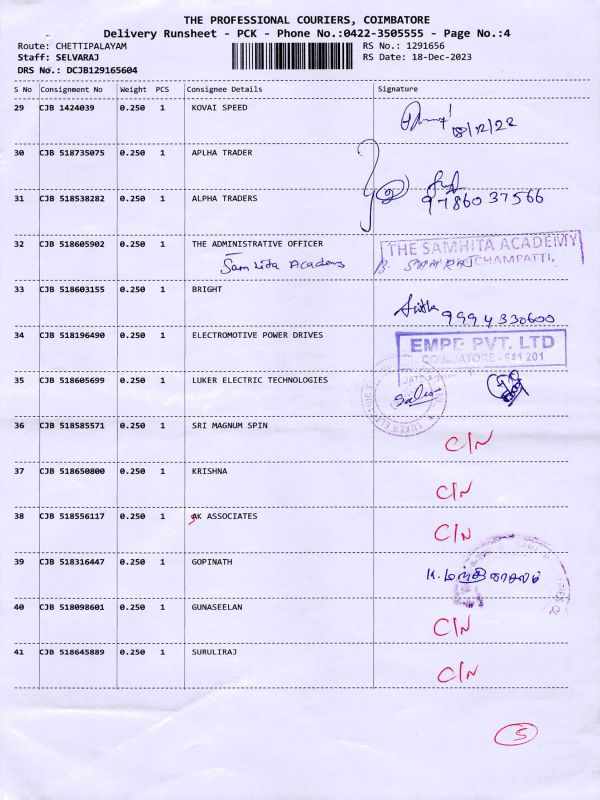 THE PROFESSIONAL COURIERS, COIMBATORE
Delivery Runsheet - PCK - Phone No.:0422-3505555 - Page No.:4
Route: CHETTIPALAYAM RS No.: 1291656
Staff: SELVARAJ RS Date: 18-Dec-2023
DRS No.: DCJB129165604
S No Consignment No Weight PCS Consignee Details Signature
29 CJB 1424039 0.250 1 KOVAI SPEED
18/12/22
30 CJB 518735075 0.250 1 APLHA TRADER
31 CJB 518538282 0.250 1 ALPHA TRADERS 9786037566
32 CJB 518605902 0.250 1 THE ADMINISTRATIVE OFFICER THE SAMHITA ACADEMY
Samhita Academy
33 CJB 518603155 0.250 1 BRIGHT
9994330600
34 CJB 518196490 0.250 1 ELECTROMOTIVE POWER DRIVES EMPR PVT. LTD
COIMBATORE - 641 201
35 CJB 518605699 0.250 1 LUKER ELECTRIC TECHNOLOGIES
36 CJB 518585571 0.250 1 SRI MAGNUM SPIN
C/N
37 CJB 518650800 0.250 1 KRISHNA
C/N
38 CJB 518556117 0.250 1 AK ASSOCIATES
C/N
39 CJB 518316447 0.250 1 GOPINATH
40 CJB 518098601 0.250 1 GUNASEELAN
C/N
41 CJB 518645889 0.250 1 SURULIRAJ
C/N
5